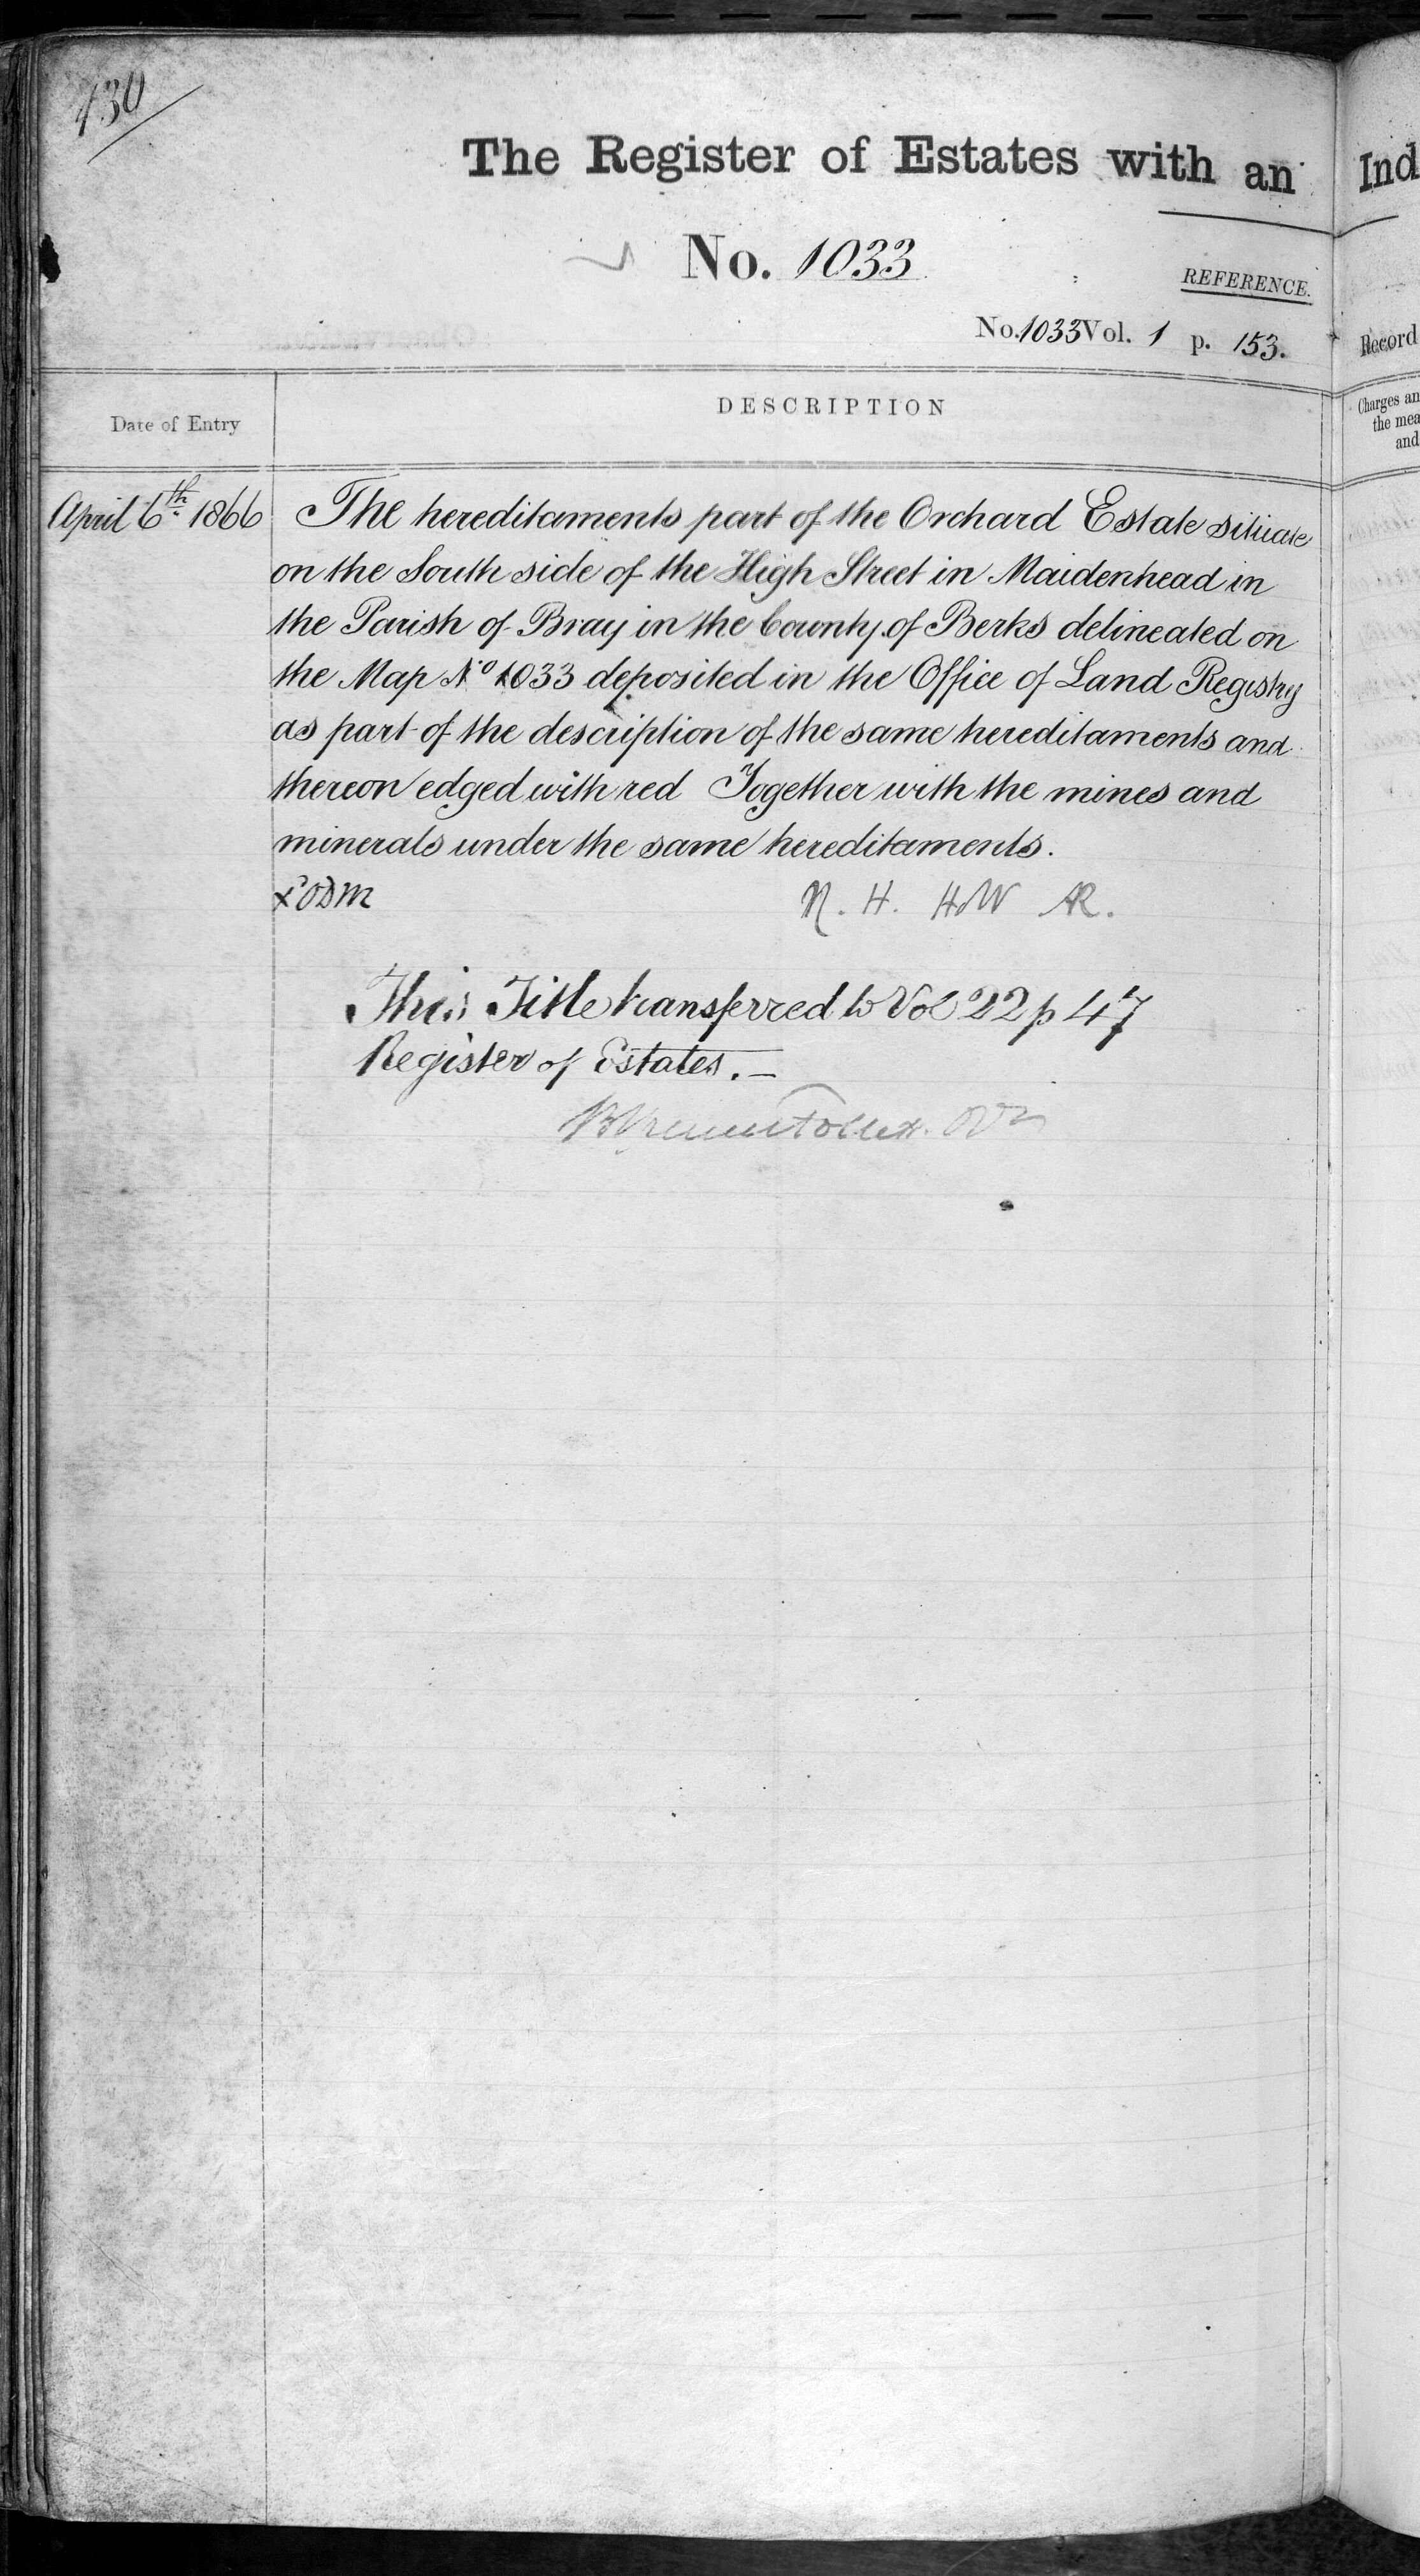 130
The Register of Estates with an Ind
No. 1033
REFERENCE.
No. 1033 Vol. 1 p. 153.
Record
Date of Entry
DESCRIPTION
Charges an
the mea
and
April 6th. 1866
The hereditaments part of the Orchard Estate situate
on the South side of the High Street in Maidenhead in
the Parish of Bray in the County of Berks delineated on
the Map No 1033 deposited in the Office of Land Registry
as part of the description of the same hereditaments and
thereon edged with red Together with the mines and
minerals under the same hereditaments.
N. H. HW AR.
This Title transferred to Vol 22 p 47
Register of Estates. —